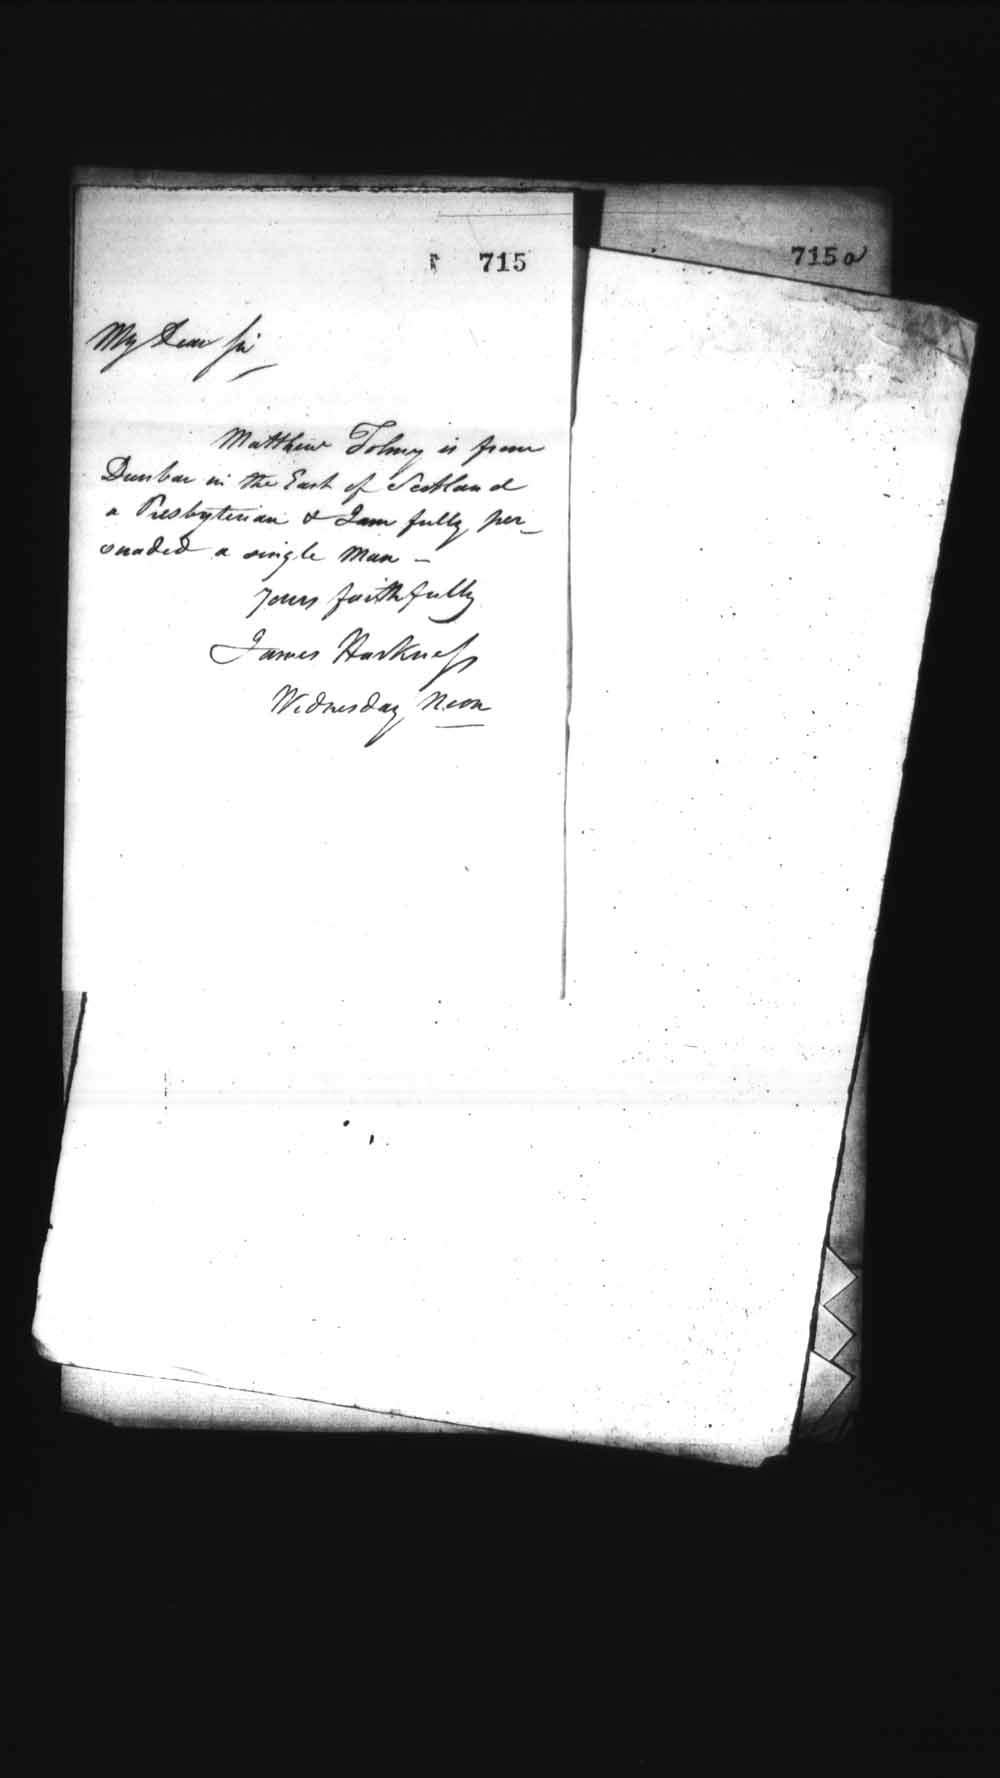 715
715a
My Dear Sir
Matthew Tolmy is from
Dunbar in the East of Scotland
a Presbyterian & I am fully per-
suaded a single Man -
Yours faithfully
James Harkness
Wednesday Noon